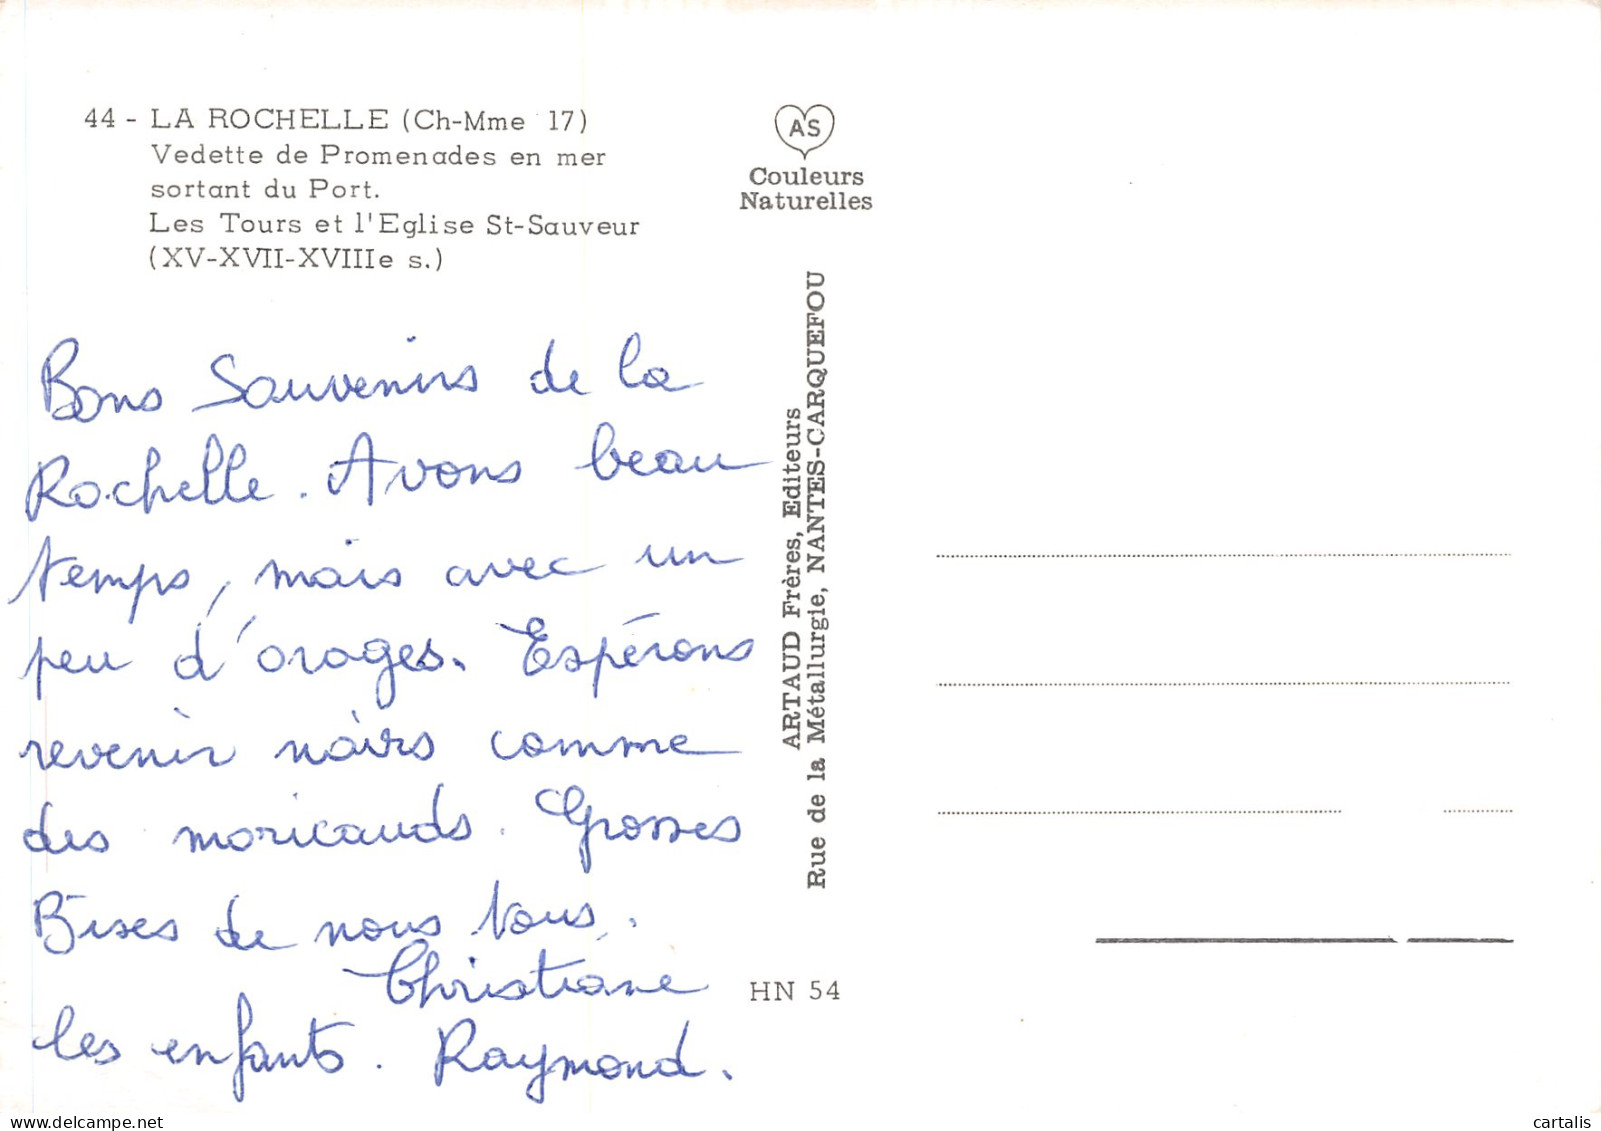 44 - LA ROCHELLE (Ch-Mme 17)
Vedette de Promenades en mer
sortant du Port.
Les Tours et l'Eglise St-Sauveur
(XV-XVII-XVIIIe s.)
Bons Souvenirs de la
Rochelle. Avons beau
temps, mais avec un
peu d'orages. Espérons
revenir noirs comme
des moricauds. Grosses
Bises de nous tous.
Christiane
les enfants. Raymond.
AS
Couleurs
Naturelles
ARTAUD Frères, Editeurs
Rue de la Métallurgie, NANTES-CARQUEFOU
HN 54
cartalis